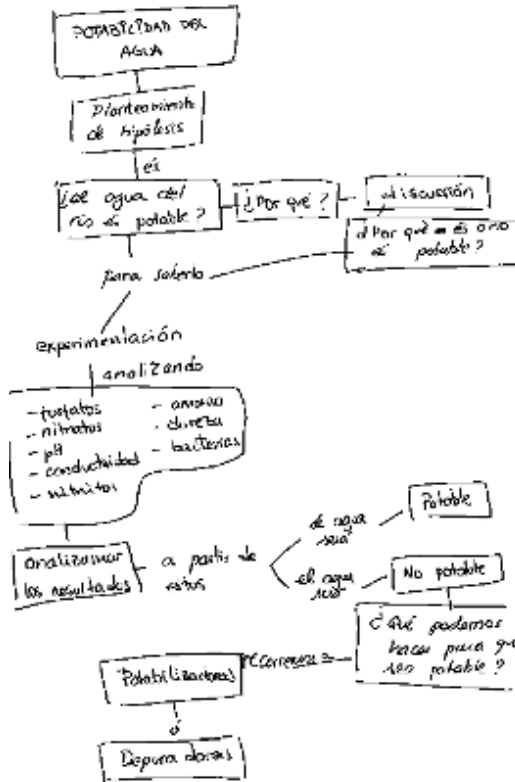 POTABILIDAD DEL
AGUA
Planteamiento
de hipótesis
es
¿el agua del
río es potable?
¿Por qué?
discusión
¿Por qué es o no
es potable?
para saberlo
experimentación
analizando
- fosfatos
- nitratos
- pH
- conductividad
- nitritos
- amonio
- dureza
- bacterias
analizamos
los resultados
a partir de
estos
el agua
será
Potable
el agua
será
No potable
¿Qué podemos
hacer para que
sea potable?
Potabilizadoras
o
Depuradoras